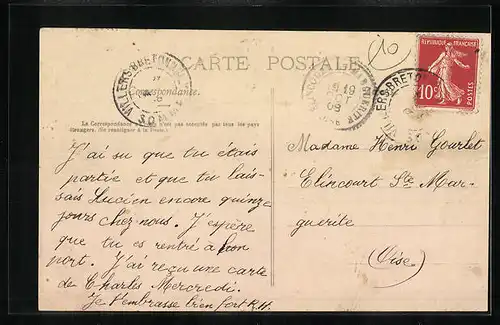 CARTE POSTALE
Correspondance
REPUBLIQUE FRANÇAISE
10c
POSTES
VILLERS-BRETONNEUX
SOMME
19
09
La Correspondance n'est pas acceptée par tous les pays
étrangers. (Se renseigner à la Poste.)
10
J'ai su que tu étais
partie et que tu lais-
sais Lucien encore quinze
jours chez-nous. J'espère
que tu es rentré à bon
port. J'ai reçu une carte
de Charles Mercredi.
Je t'embrasse bien fort R.H.
Madame Henri Gourlet
Elincourt Ste Mar-
guerite
(Oise)